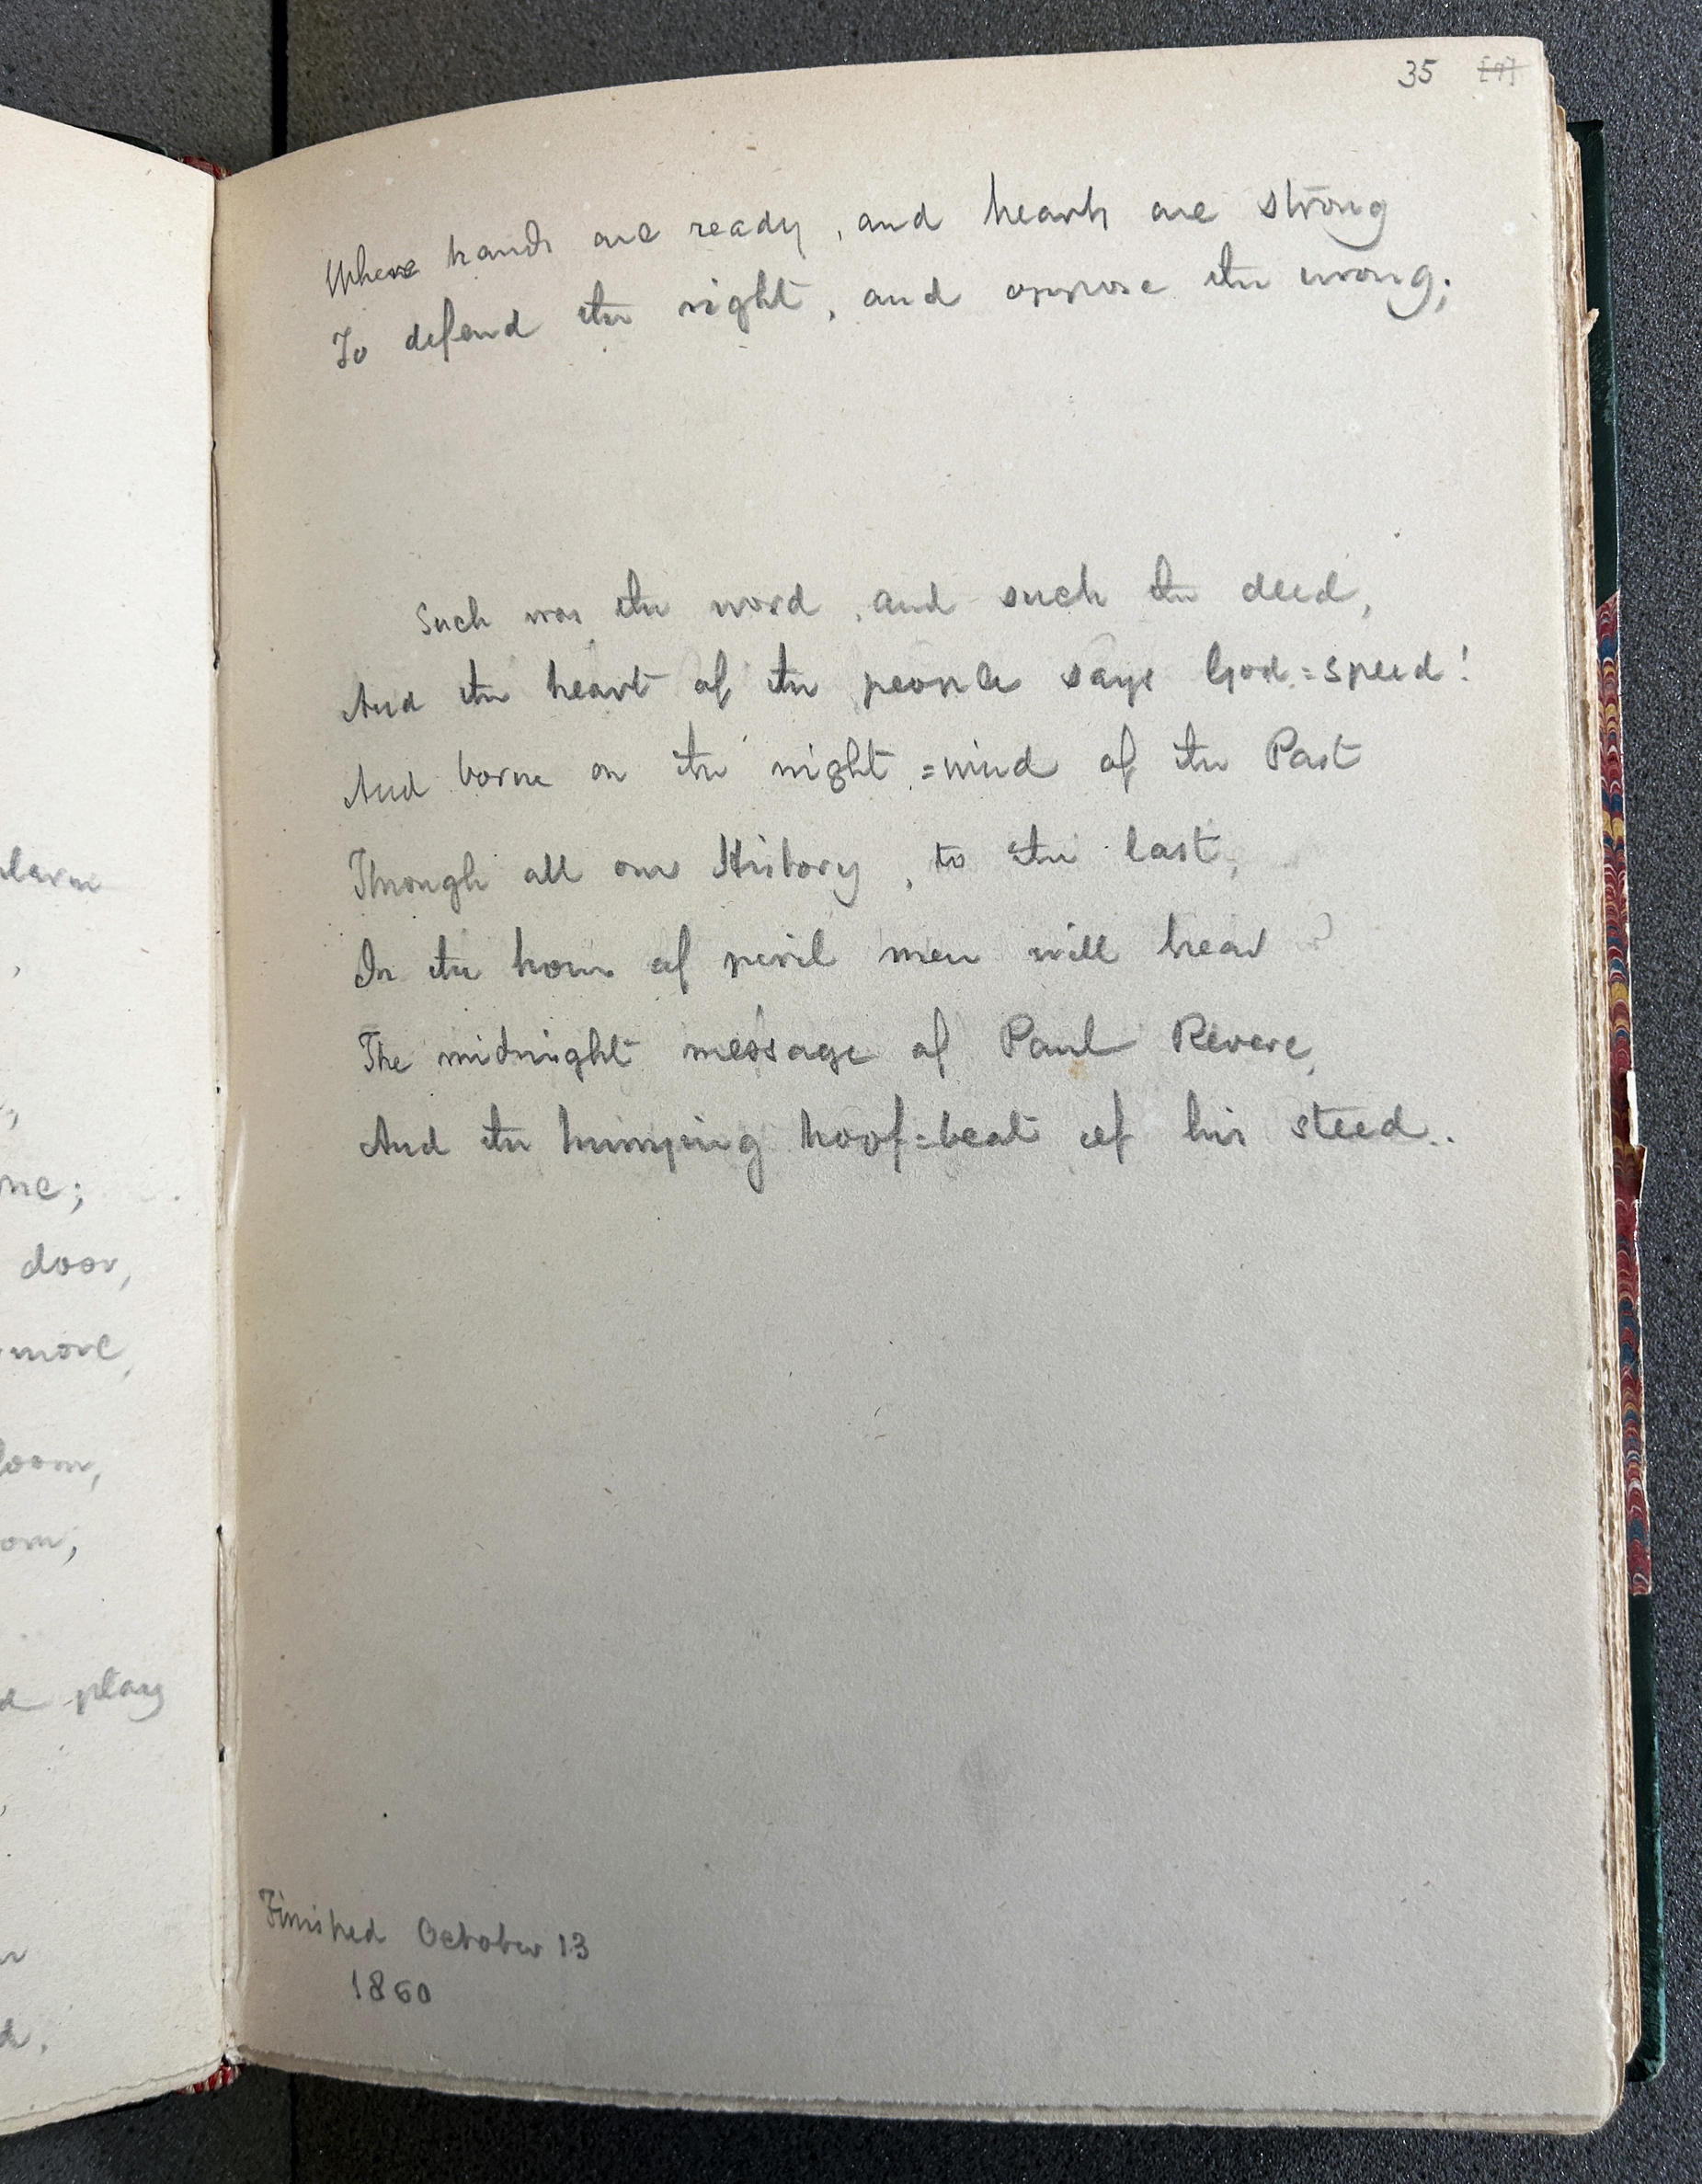 alarm
,
me;
door,
more,
loom,
om;
play
d.
35 [9]
Where hands are ready, and hearts are strong
To defend the right, and oppose the wrong;
Such was the word, and such the deed,
And the heart of the people says God=speed!
And borne on the night=wind of the Past
Through all our History, to the last,
In the hour of peril men will hear
The midnight message of Paul Revere,
And the hurrying hoof=beat of his steed..
Finished October 13
1860